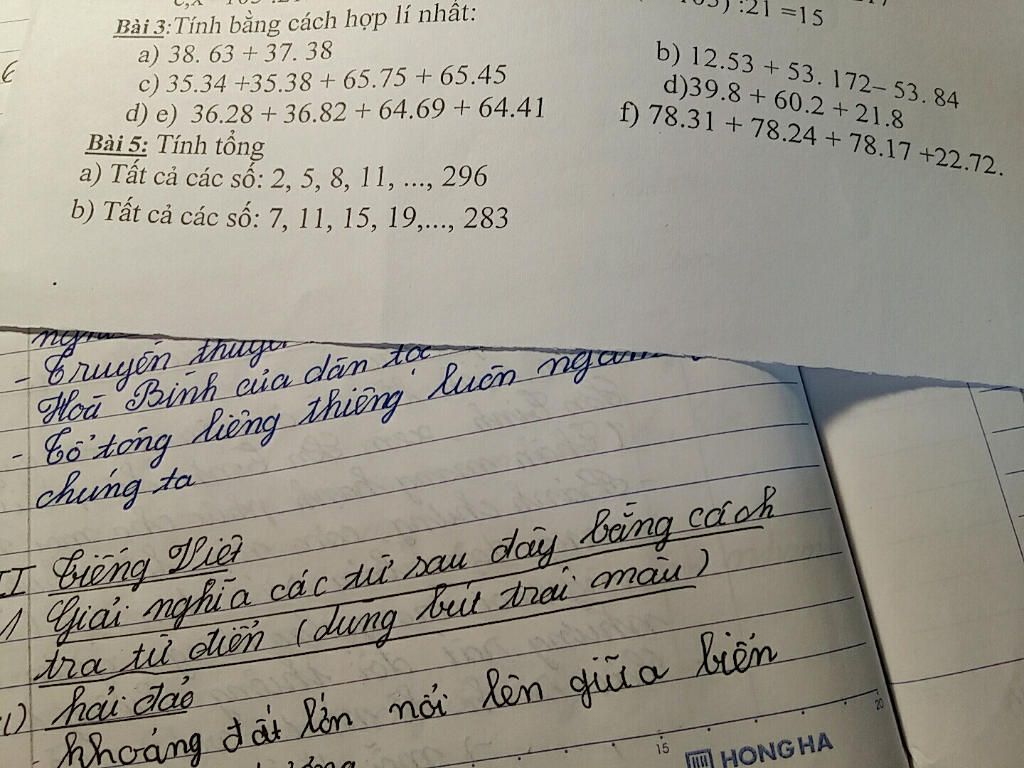 :21 =15
Bài 3:Tính bằng cách hợp lí nhất:
a) 38. 63 + 37. 38
b) 12.53 + 53. 172– 53. 84
c) 35.34 +35.38 + 65.75 + 65.45
d)39.8 + 60.2 + 21.8
d) e) 36.28 + 36.82 + 64.69 + 64.41
f) 78.31 + 78.24 + 78.17 +22.72.
Bài 5: Tính tổng
a) Tất cả các số: 2, 5, 8, 11, ..., 296
b) Tất cả các số: 7, 11, 15, 19,..., 283
- Truyền
Hoà Bình của dân tộc
- Cổ tòng liêng thiêng luôn
chúng ta
II Tiếng Việt
1 Giải nghĩa các từ sau đây bằng cách
tra từ điển (dùng bút trái màu)
1) hải đảo
khoảng đất lớn nổi lên giữa biển
15
20
HONG HA